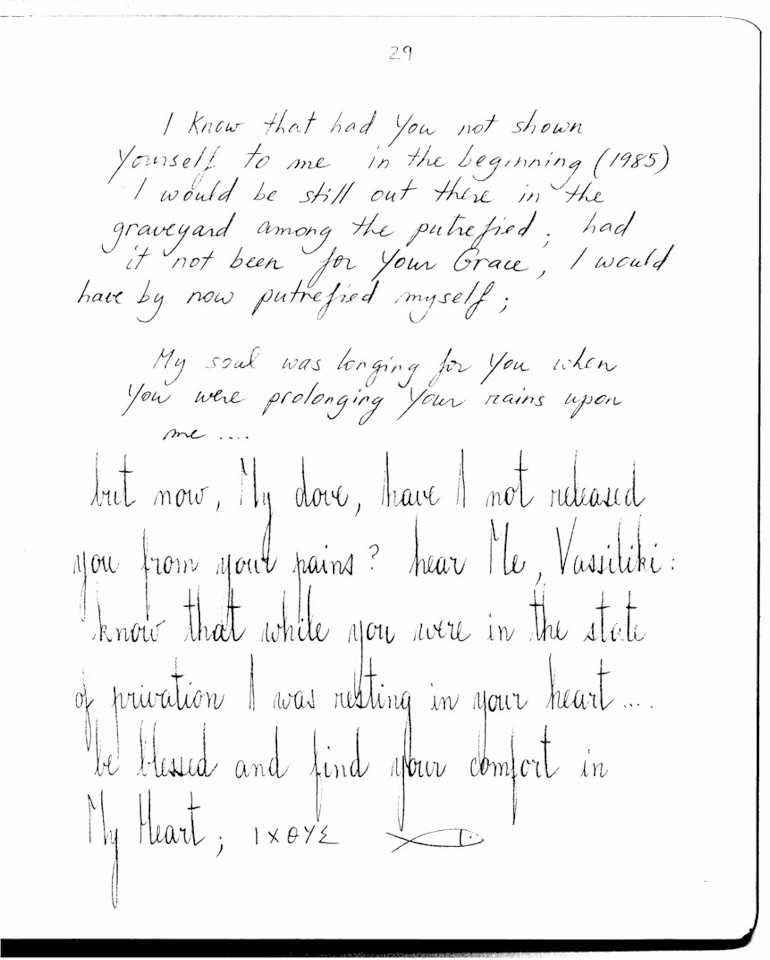 29
I know that had You not shown
Yourself to me in the beginning (1985)
I would be still out there in the
graveyard among the putrefied; had
it not been for Your Grace, I would
have by now putrefied myself;
My soul was longing for You when
You were prolonging Your rains upon
me ....
but now, My dove, have I not released
you from your pains? hear Me, Vassiliki:
know that while you were in the state
of privation I was resting in your heart....
be blessed and find your comfort in
My Heart; ΙΧΘΥΣ